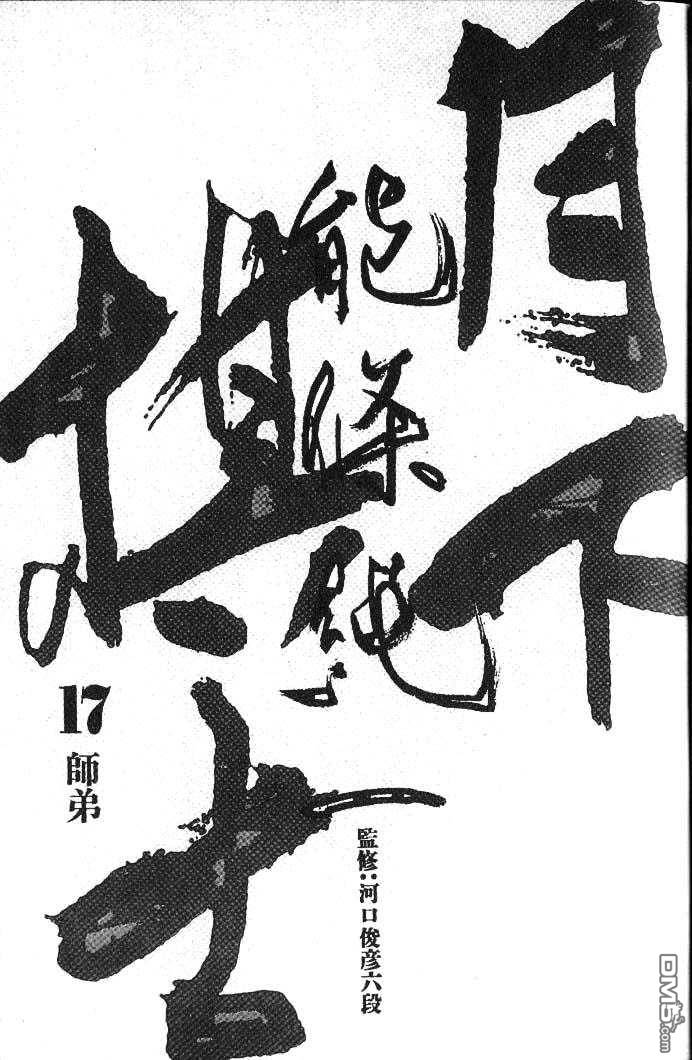 月下
棋士
能條純一
17
師弟
監修：河口俊彦六段
DM5.com